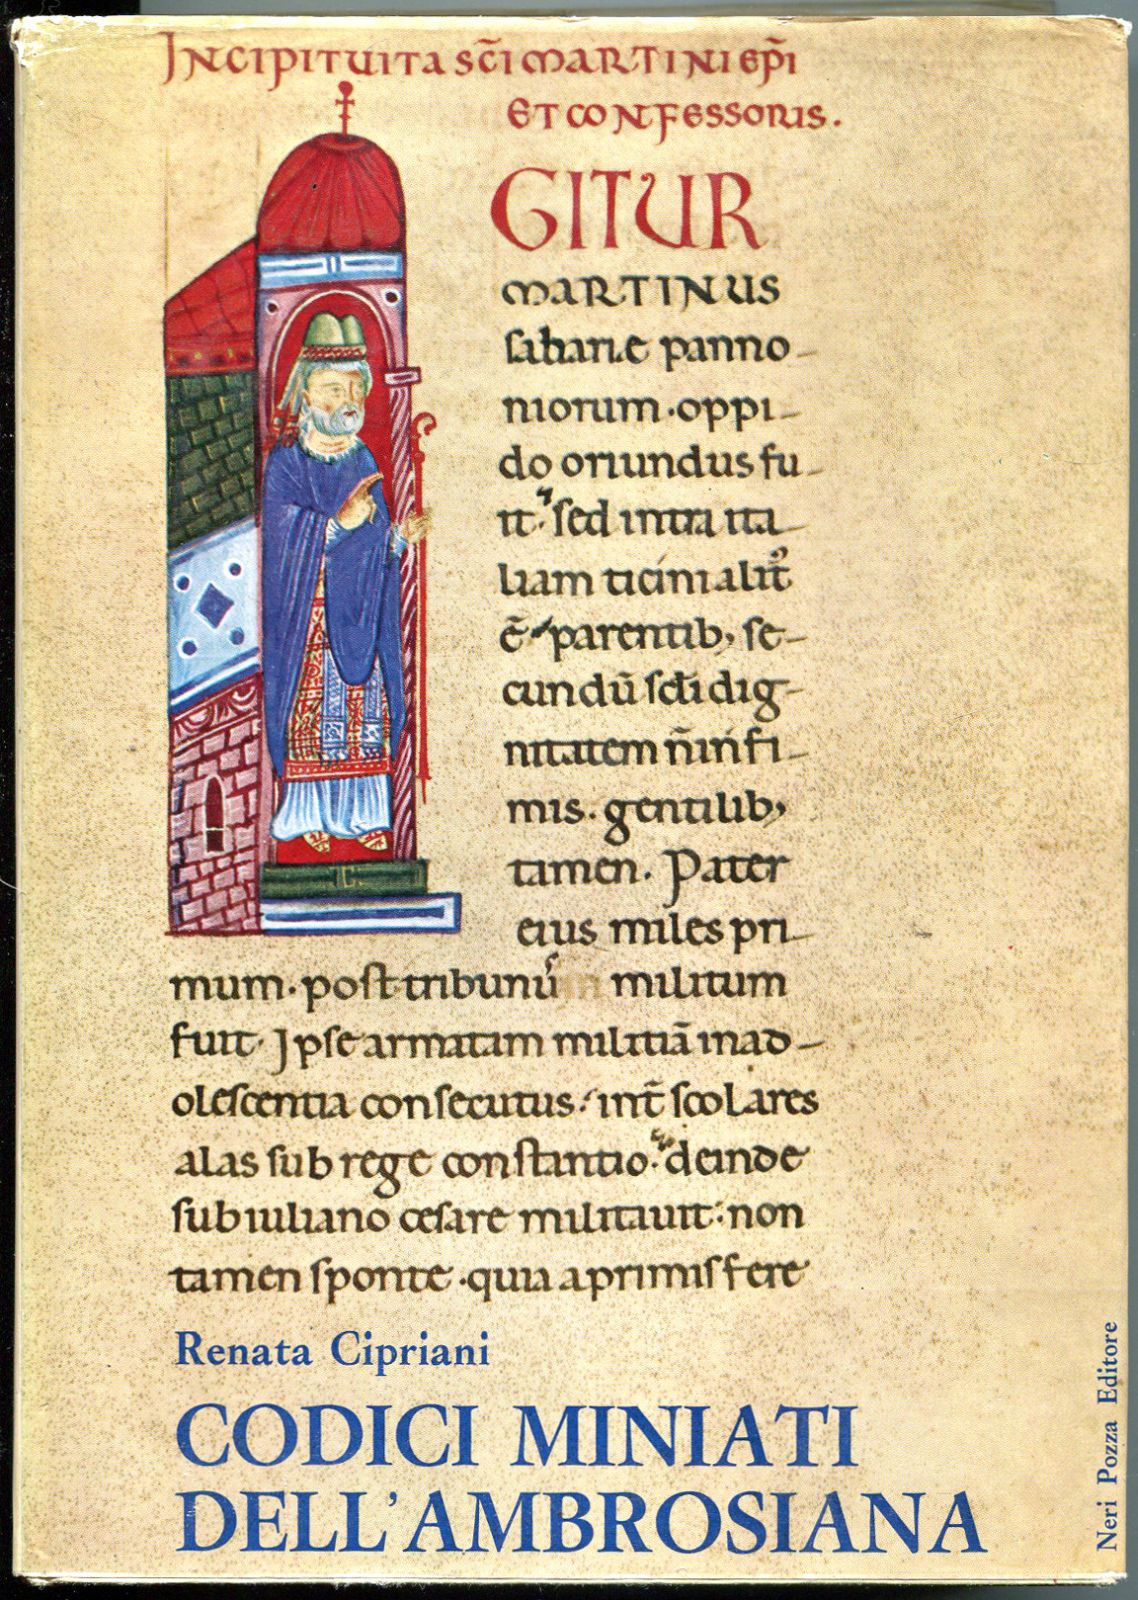 INCIPIT VITA SC̄I MARTINI EP̄I
ET CONFESSORIS.
GITUR
MARTINUS
sabarie panno-
niorum · oppi-
do oriundus fu-
it · sed intra ita-
liam ticini alit᷒
ē · parentib, se-
cundū sc̄di dig-
nitatem n̄ infi-
mis · gentilib,
tamen. Pater
eius miles pri-
mum · post tribunus militum
fuit · Ipse armatam militiā in ad-
olescentia consecutus · int̄ scolares
alas sub rege constantio · deinde
sub iuliano cesare militauit · non
tamen sponte · quia a primis fere
Renata Cipriani
CODICI MINIATI
DELL'AMBROSIANA
Neri Pozza Editore